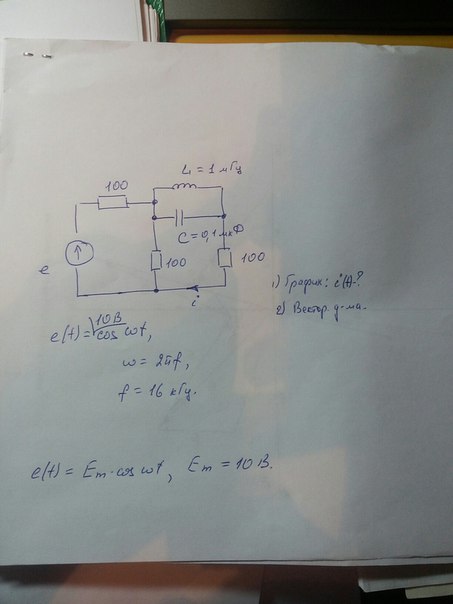 100
L = 1 мГц
C = 0,1 мкФ
100
100
e
i
1) График: i(t)-?
2) Вектор. д-ма.
e(t) = 10В cos ωt,
ω = 2πf,
f = 16 кГц.
e(t) = Em · cos ωt, Em = 10 В.